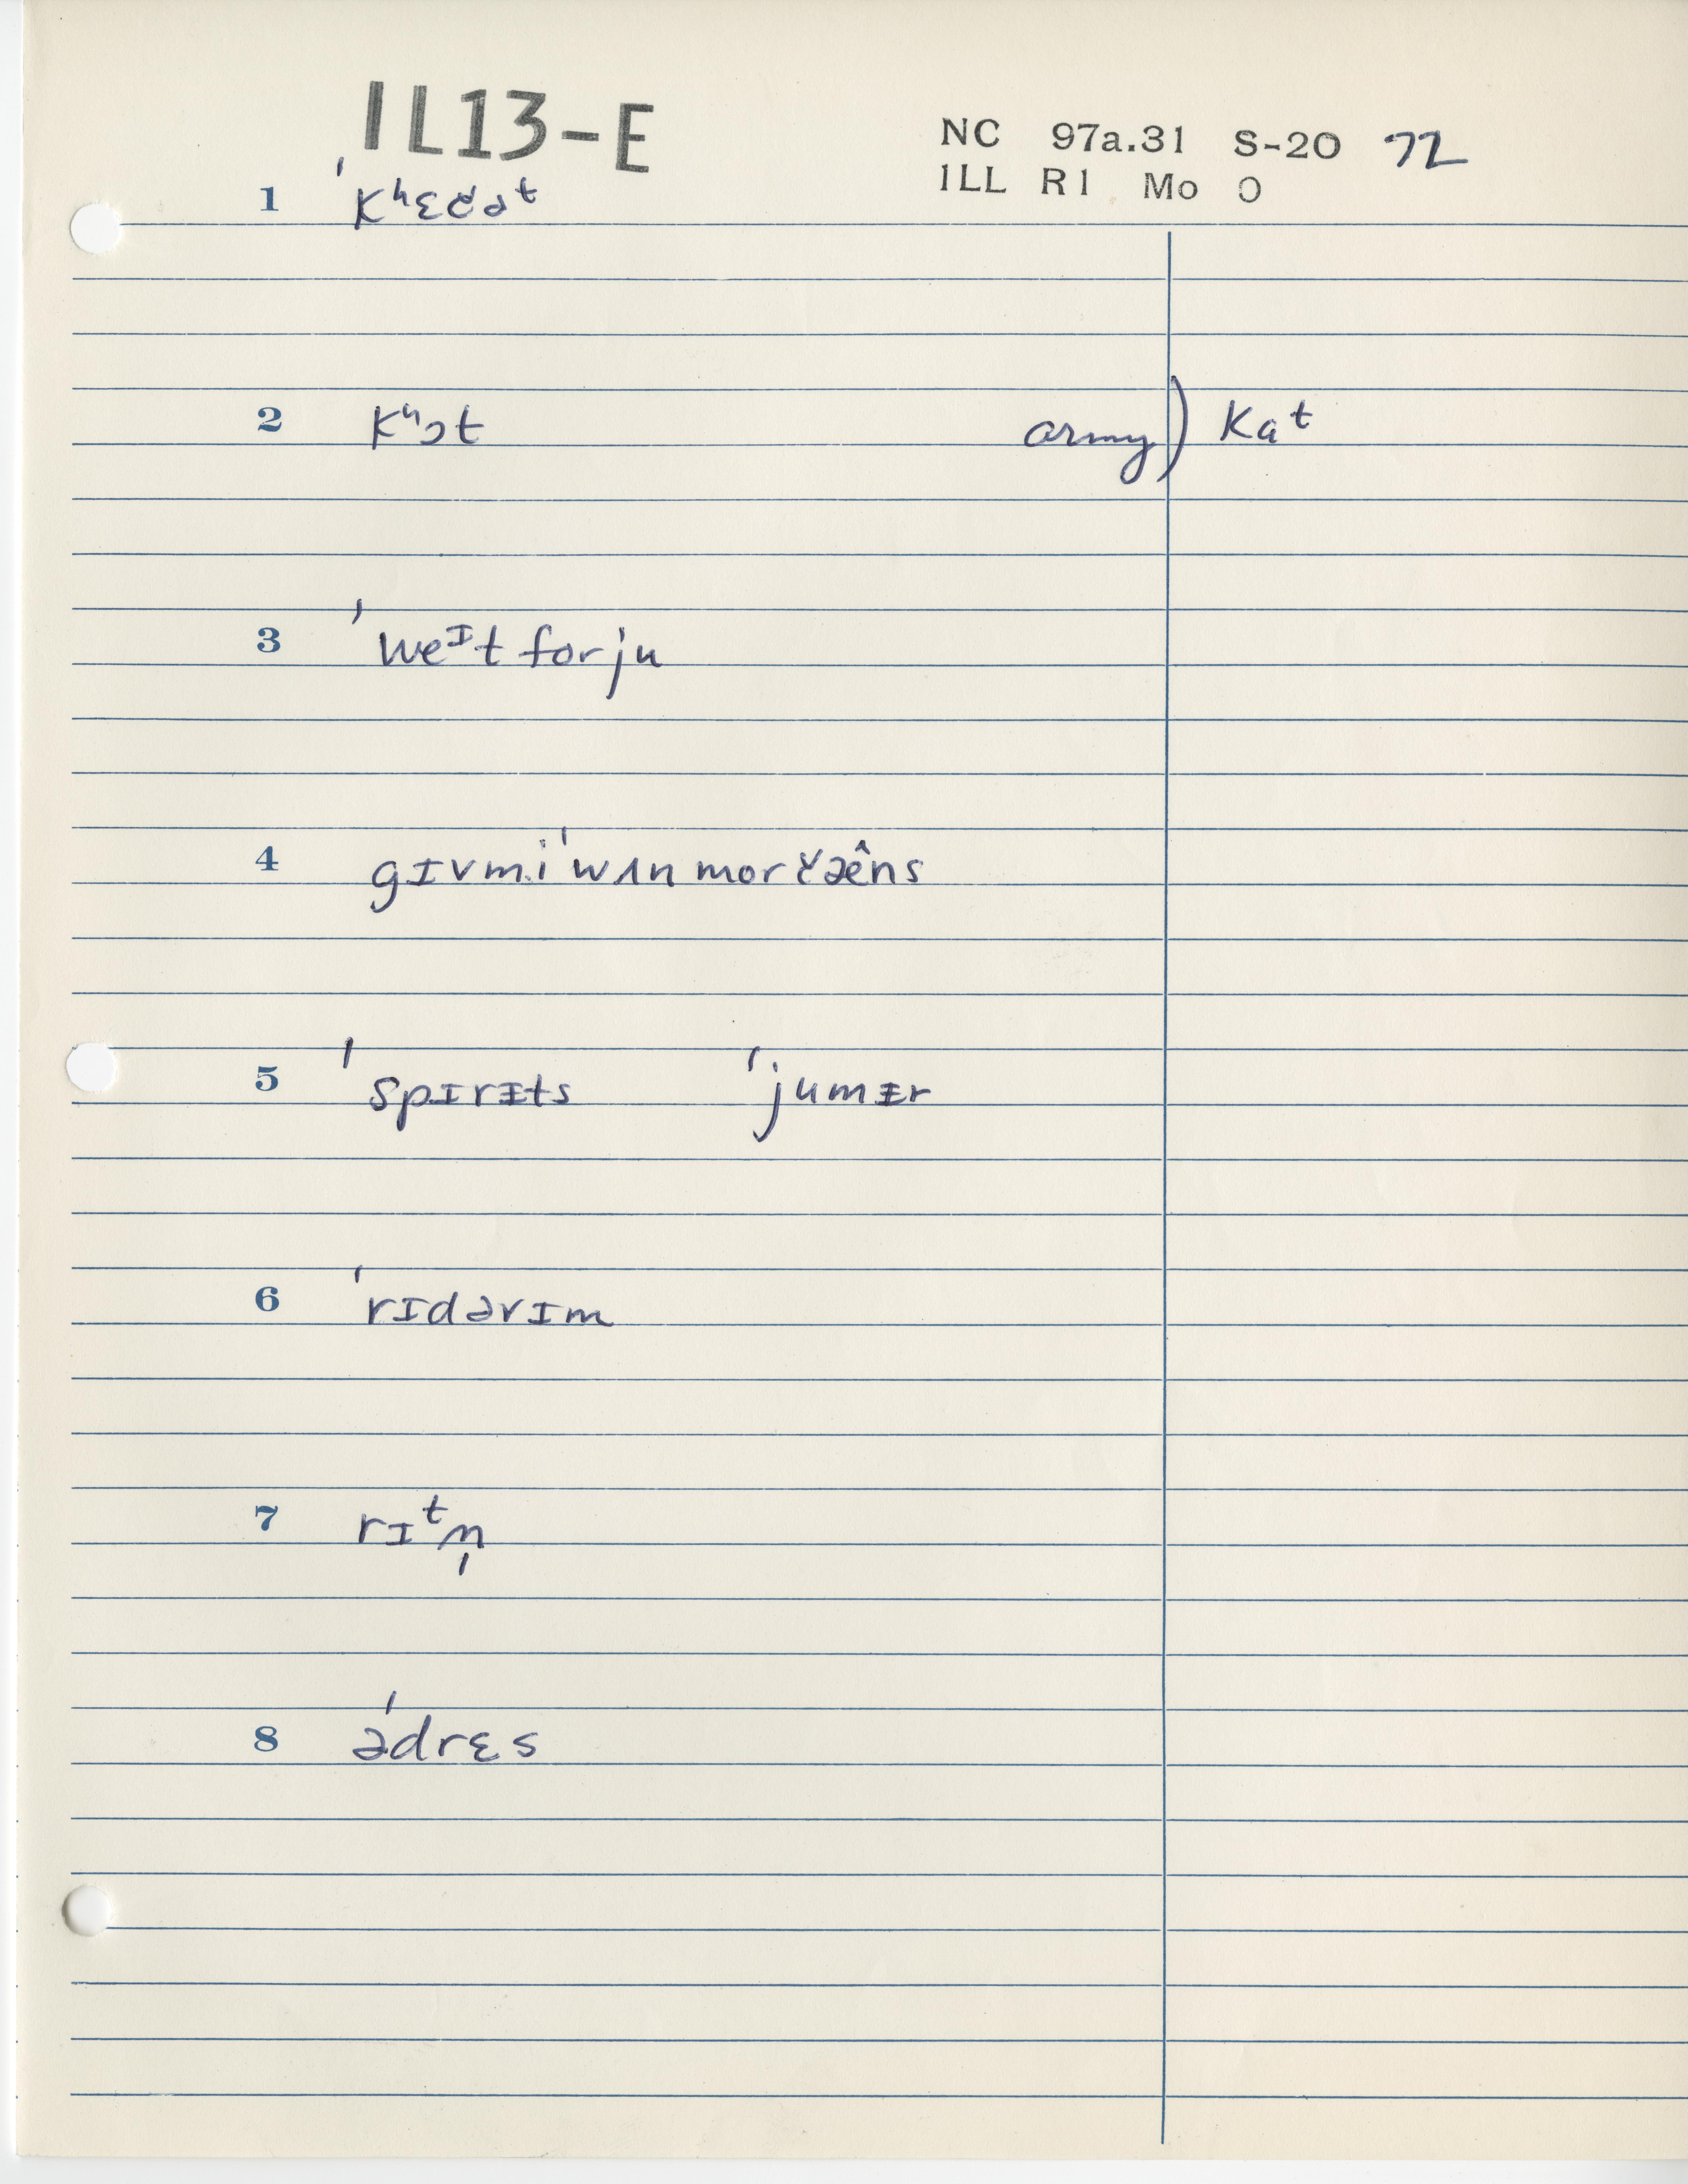 IL13-E
NC 97a.31 S-20 72
ILL R1 Mo O
1 ˈKʰɛdəᵗ
2 Kʰɔt army) Kaᵗ
3 ˈweᶦt for ju
4 gɪvmi ˈwʌn mor čæêns
5 ˈspɪrɪts ˈjumɪr
6 ˈrɪdəvɪm
7 rɪᵗn̩
8 ˈədrɛs